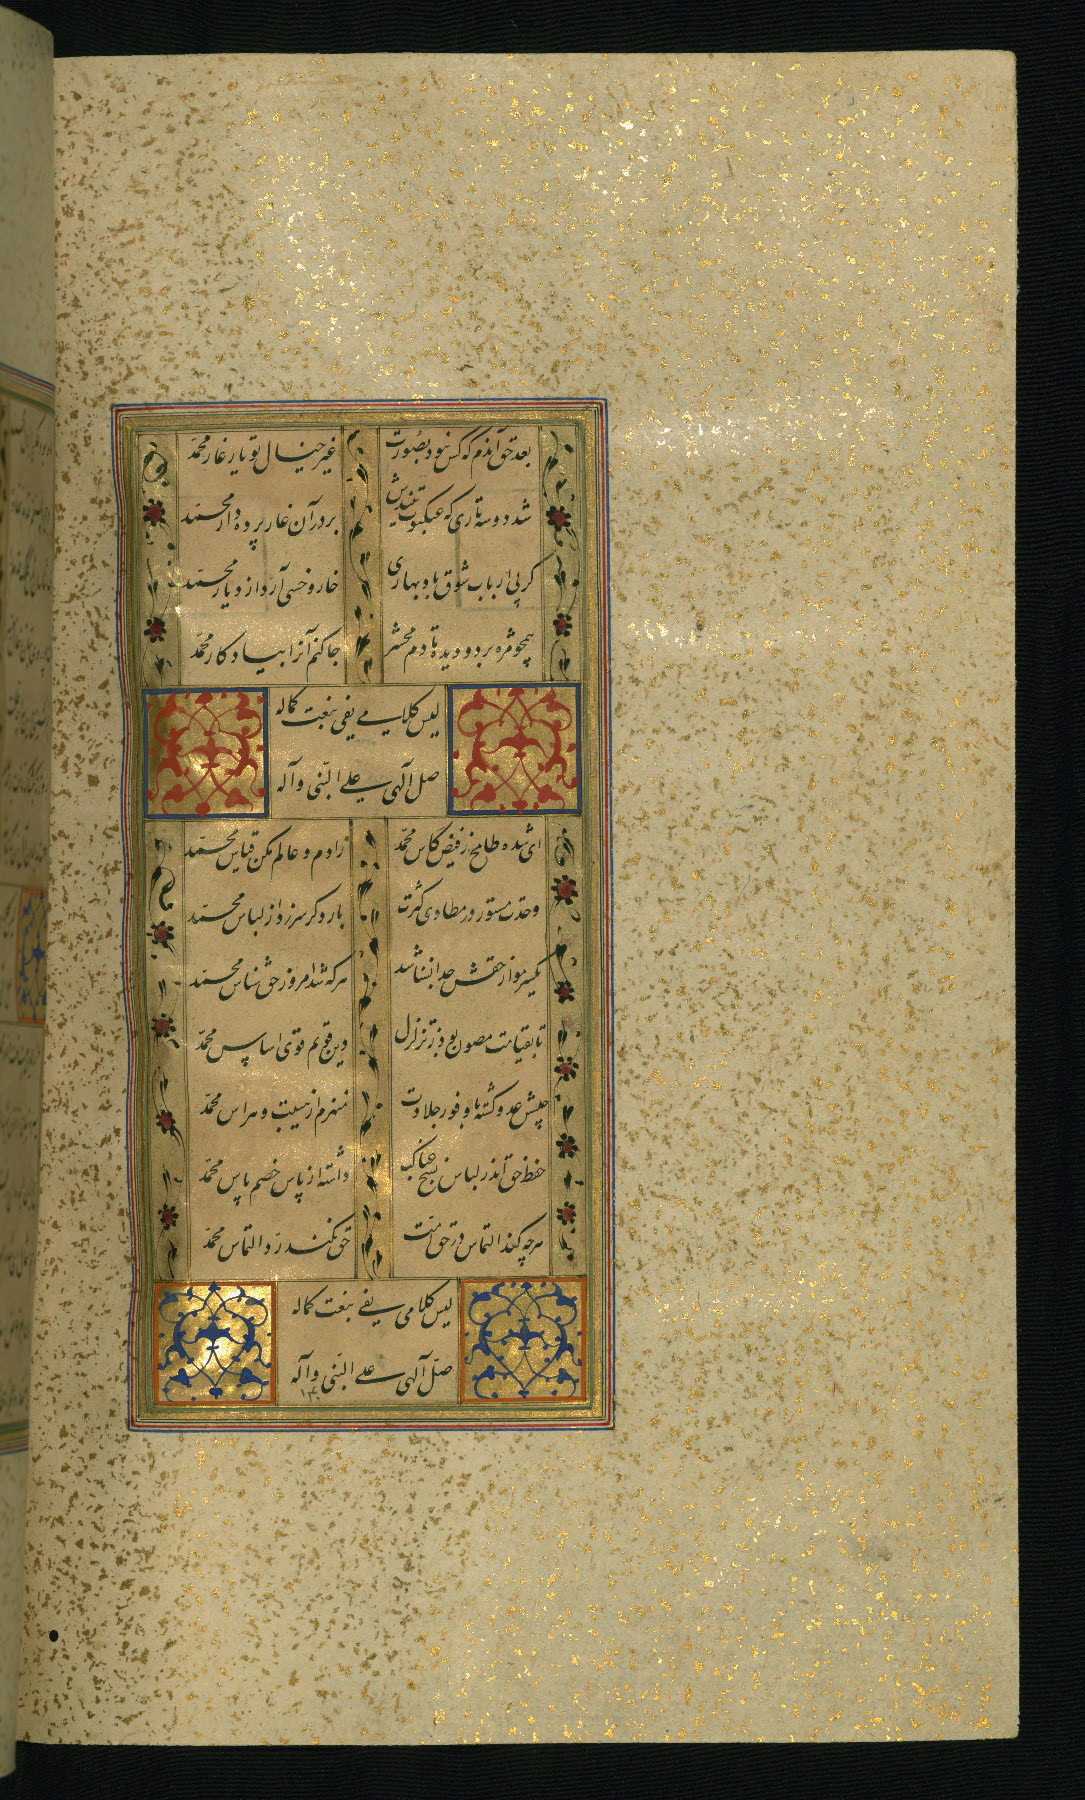 بعد حق آندم که کس نبود بصورت غیر خیال تو یار غار محمّد
شد دو سه تاری که عنکبوت تنیدش بر در آن غار پرده دار محمّد
کر پی ارباب شوق باد بهاری خار و خسی آرد از دیار محمّد
همچو مژه بر دو دیده تا دم محشر جا کنم آنرا بیادکار محمّد
لیس کلامی یفی بنعت کماله
صل الهی علی النبی وآله
ای شده طامع زفیض کاس محمّد زادم و عالم مکن قیاس محمّد
وحدت مستور در مطاوی کثرت بار دکر سرزد از لباس محمّد
یکسر مو از حقش جدا نشناسد هر که شد امروز حق شناس محمّد
تا بقیامت مصون بود ز تزلزل دین قویم قوی اساس محمّد
جیش عدو کشته با وفور جلادت منهزم از هیبت و هراس محمّد
حفظ حق اندر لباس نسج عناکب داشته از پاس خصم پاس محمّد
هرچه کند التماس در حق امّت حق نکند ردّ التماس محمّد
لیس کلامی یفی بنعت کماله
صلّ الهی علی النّبی وآله